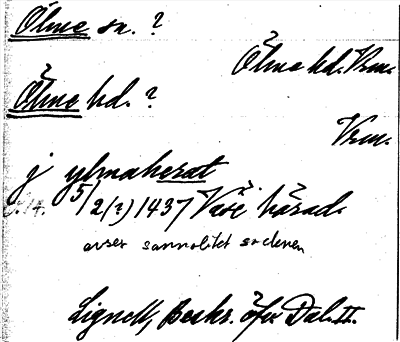 Ölme sn. ?
Ölme hd. Vrm.
Ölme hd. ?
Vrm.
j ylmaherat
5/2(?) 1437 Väse härad.
avser sannolikt socknen
Lignell, Beskr. öfver Dal. II.